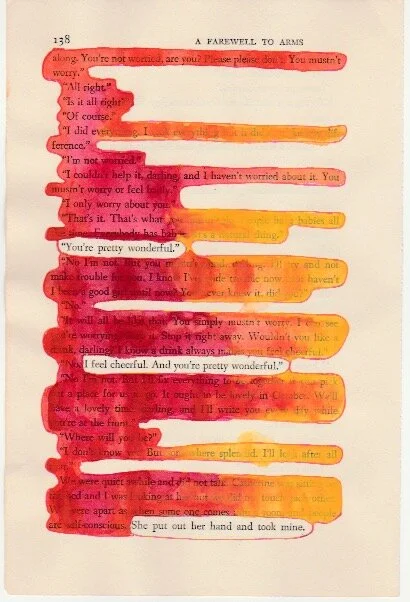 138 A FAREWELL TO ARMS
along. You're not worried, are you? Please please don't. You mustn't
worry."
"All right."
"Is it all right?"
"Of course."
"I did everything. I took everything but it didn't make any dif-
ference."
"I'm not worried."
"I couldn't help it, darling, and I haven't worried about it. You
mustn't worry or feel badly."
"I only worry about you."
"That's it. That's what you people have babies all
the time. Everybody has babies. It's a natural thing."
"You're pretty wonderful."
"No I'm not. But you mustn't mind, darling. I'll try and not
make trouble for you. I know I've made trouble now. But haven't
I been a good girl until now? You never knew it, did you?"
"No."
"It will all be like that. You simply mustn't worry. I can see
you're worrying. Stop it. Stop it right away. Wouldn't you like a
drink, darling? I know a drink always makes you feel cheerful."
"No. I feel cheerful. And you're pretty wonderful."
"No I'm not. But I'll fix everything to be together if you pick
out a place for us to go. It ought to be lovely in October. We'll
have a lovely time, darling, and I'll write you every day while
you're at the front."
"Where will you be?"
"I don't know yet. But somewhere splendid. I'll look after all
We were quiet awhile and did not talk. Catherine was sitting
bed and I was looking at her but we did not touch each other.
We were apart as when some one comes room and people
are self-conscious. She put out her hand and took mine.